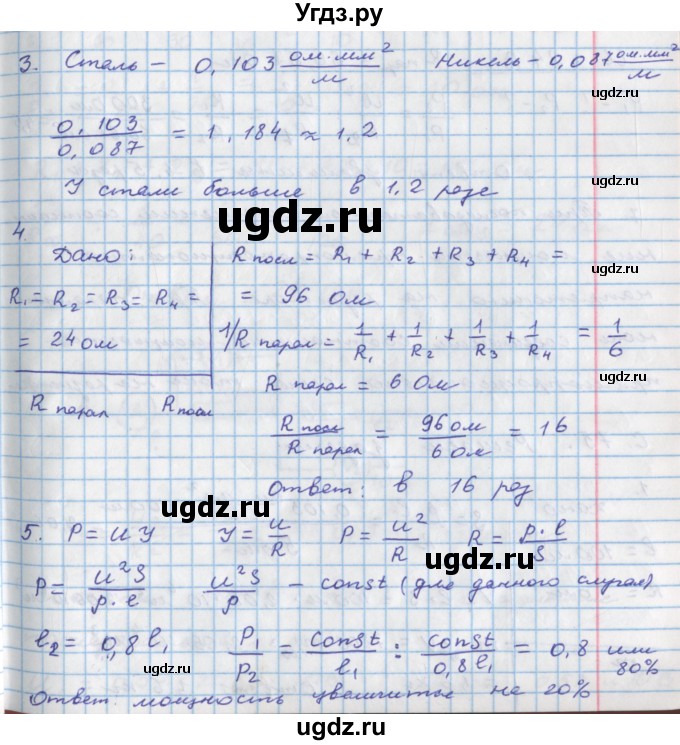 Угдз.ру
3. Сталь – 0,103 ом·мм²/м Никель – 0,087 ом·мм²/м
ugdz.ru
0,103/0,087 = 1,184 ≈ 1,2
ugdz.ru
У стали больше в 1,2 раза
ugdz.ru
4.
Дано:
R₁ = R₂ = R₃ = R₄ =
= 24 ом
R парал R посл
R посл = R₁ + R₂ + R₃ + R₄ =
= 96 Ом
ugdz.ru
1/R парал = 1/R₁ + 1/R₂ + 1/R₃ + 1/R₄ = 1/6
R парал = 6 Ом
ugdz.ru
R посл/R парал = 96 ом/6 ом = 16
ugdz.ru
Ответ: в 16 раз
ugdz.ru
5. P = UI I = U/R P = U²/R R = ρ·l/S
ugdz.ru
P = U²S/ρ·l U²S/ρ – const (для данного случая)
l₂ = 0,8 l₁ P₁/P₂ = const/l₁ : const/0,8 l₁ = 0,8 или 80%
ugdz.ru
Ответ: мощность увеличится на 20%
ugdz.ru ugdz.ru